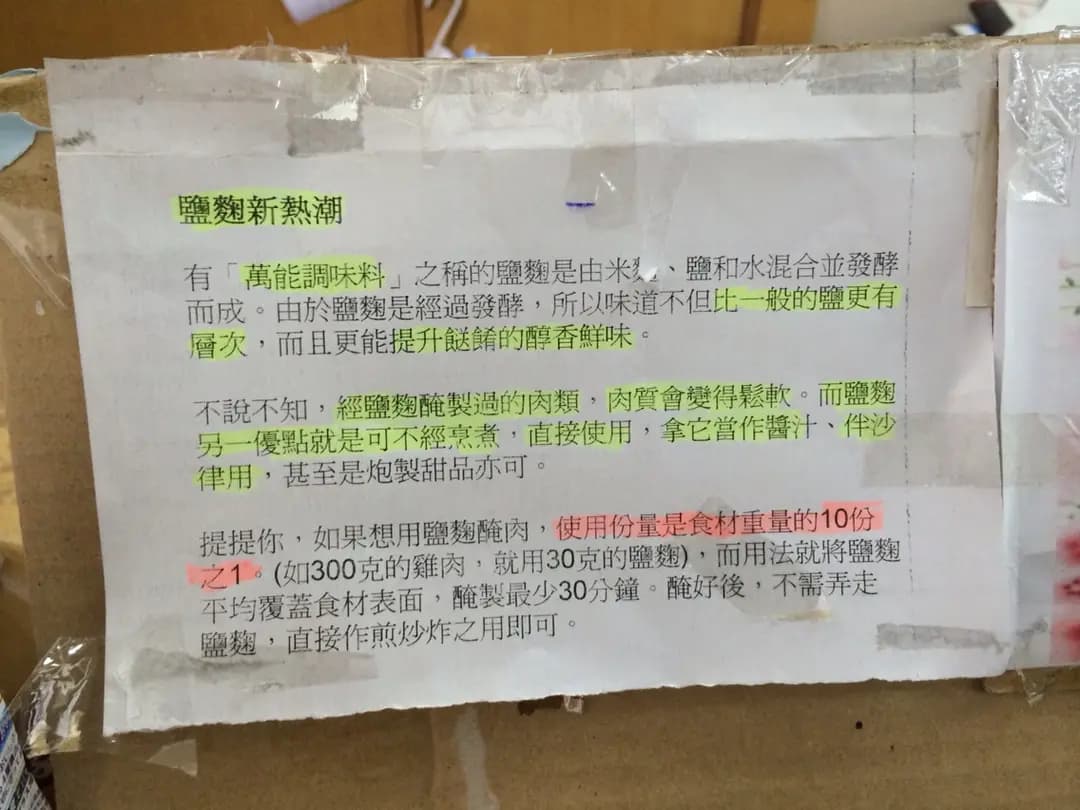 鹽麴新熱潮
有「萬能調味料」之稱的鹽麴是由米麴、鹽和水混合並發酵
而成。由於鹽麴是經過發酵，所以味道不但比一般的鹽更有
層次，而且更能提升餸餚的醇香鮮味。
不說不知，經鹽麴醃製過的肉類，肉質會變得鬆軟。而鹽麴
另一優點就是可不經烹煮，直接使用，拿它當作醬汁、伴沙
律用，甚至是炮製甜品亦可。
提提你，如果想用鹽麴醃肉，使用份量是食材重量的10份
之1。(如300克的雞肉，就用30克的鹽麴)，而用法就將鹽麴
平均覆蓋食材表面，醃製最少30分鐘。醃好後，不需弄走
鹽麴，直接作煎炒炸之用即可。